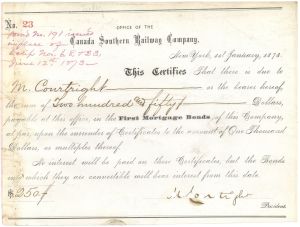 No. 23
OFFICE OF THE
Canada Southern Railway Company,
New-York, 1st January, 1873.
This Certifies That there is due to
M. Courtright as the bearer hereof
the sum of Two hundred and fifty Dollars,
payable at this office, in the First Mortgage Bonds of this Company,
at par, upon the surrender of Certificates to the amount of One Thousand
Dollars, or multiples thereof.
No interest will be paid on these Certificates, but the Bonds
into which they are convertible will bear interest from this date.
$250
President.